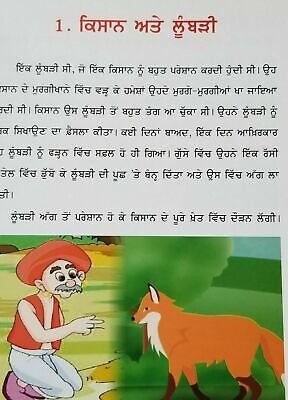 1. ਕਿਸਾਨ ਅਤੇ ਲੂੰਬੜੀ
ਇੱਕ ਲੂੰਬੜੀ ਸੀ, ਜੋ ਇੱਕ ਕਿਸਾਨ ਨੂੰ ਬਹੁਤ ਪਰੇਸ਼ਾਨ ਕਰਦੀ ਹੁੰਦੀ ਸੀ। ਉਹ
ਸਾਨ ਦੇ ਮੁਰਗੀਖਾਨੇ ਵਿੱਚ ਵੜ੍ਹ ਕੇ ਹਮੇਸ਼ਾਂ ਉਹਦੇ ਮੁਰਗੇ-ਮੁਰਗੀਆਂ ਖਾ ਜਾਇਆ
ਰਦੀ ਸੀ। ਕਿਸਾਨ ਉਸ ਲੂੰਬੜੀ ਤੋਂ ਬਹੁਤ ਤੰਗ ਆ ਚੁੱਕਾ ਸੀ। ਉਹਨੇ ਲੂੰਬੜੀ ਨੂੰ
ਬਕ ਸਿਖਾਉਣ ਦਾ ਫ਼ੈਸਲਾ ਕੀਤਾ। ਕਈ ਦਿਨਾਂ ਬਾਅਦ, ਇੱਕ ਦਿਨ ਆਖ਼ਿਰਕਾਰ
ਹ ਲੂੰਬੜੀ ਨੂੰ ਫੜ੍ਹਨ ਵਿੱਚ ਸਫ਼ਲ ਹੋ ਹੀ ਗਿਆ। ਗੁੱਸੇ ਵਿੱਚ ਉਹਨੇ ਇੱਕ ਰੱਸੀ
ਤੇਲ ਵਿੱਚ ਡੁੱਬੋ ਕੇ ਲੂੰਬੜੀ ਦੀ ਪੂਛ 'ਤੇ ਬੰਨ੍ਹ ਦਿੱਤਾ ਅਤੇ ਉਸ ਵਿੱਚ ਅੱਗ ਲਾ
ਤੀ।
ਲੂੰਬੜੀ ਅੱਗ ਤੋਂ ਪਰੇਸ਼ਾਨ ਹੋ ਕੇ ਕਿਸਾਨ ਦੇ ਪੂਰੇ ਖ਼ੇਤ ਵਿੱਚ ਦੌੜਨ ਲੱਗੀ।